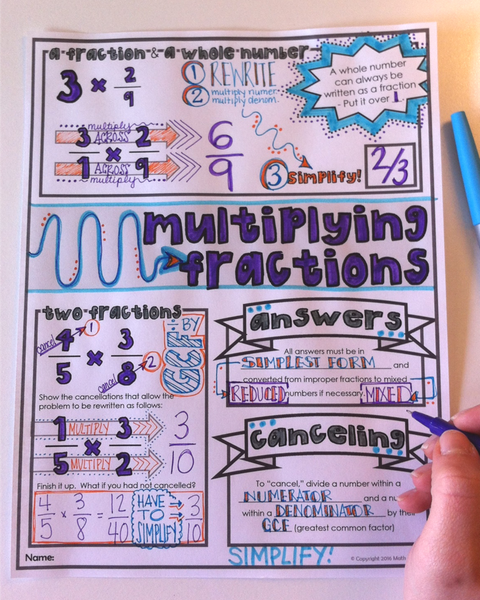 a fraction & a whole number
3 × 2/9
1 REWRITE
2 multiply numer.
multiply denom.
A whole number
can always be
written as a fraction
- Put it over 1.
multiply
3 ACROSS 2
×
1 ACROSS 9
multiply
6/9
3 simplify!
2/3
multiplying
fractions
two fractions
cancel 4/5 1 × 3/8 2 cancel
÷ BY GCF
Show the cancellations that allow the
problem to be rewritten as follows:
1 MULTIPLY 3
×
5 MULTIPLY 2
3/10
Finish it up. What if you had not cancelled?
4/5 × 3/8 = 12/40 HAVE TO SIMPLIFY 3/10
answers
All answers must be in
SIMPLEST FORM and
converted from improper fractions to mixed
REDUCED numbers if necessary. MIXED
canceling
To "cancel," divide a number within a
NUMERATOR and a
within a DENOMINATOR by their
GCF (greatest common factor)
SIMPLIFY!
Name:
© Copyright 2016 Math